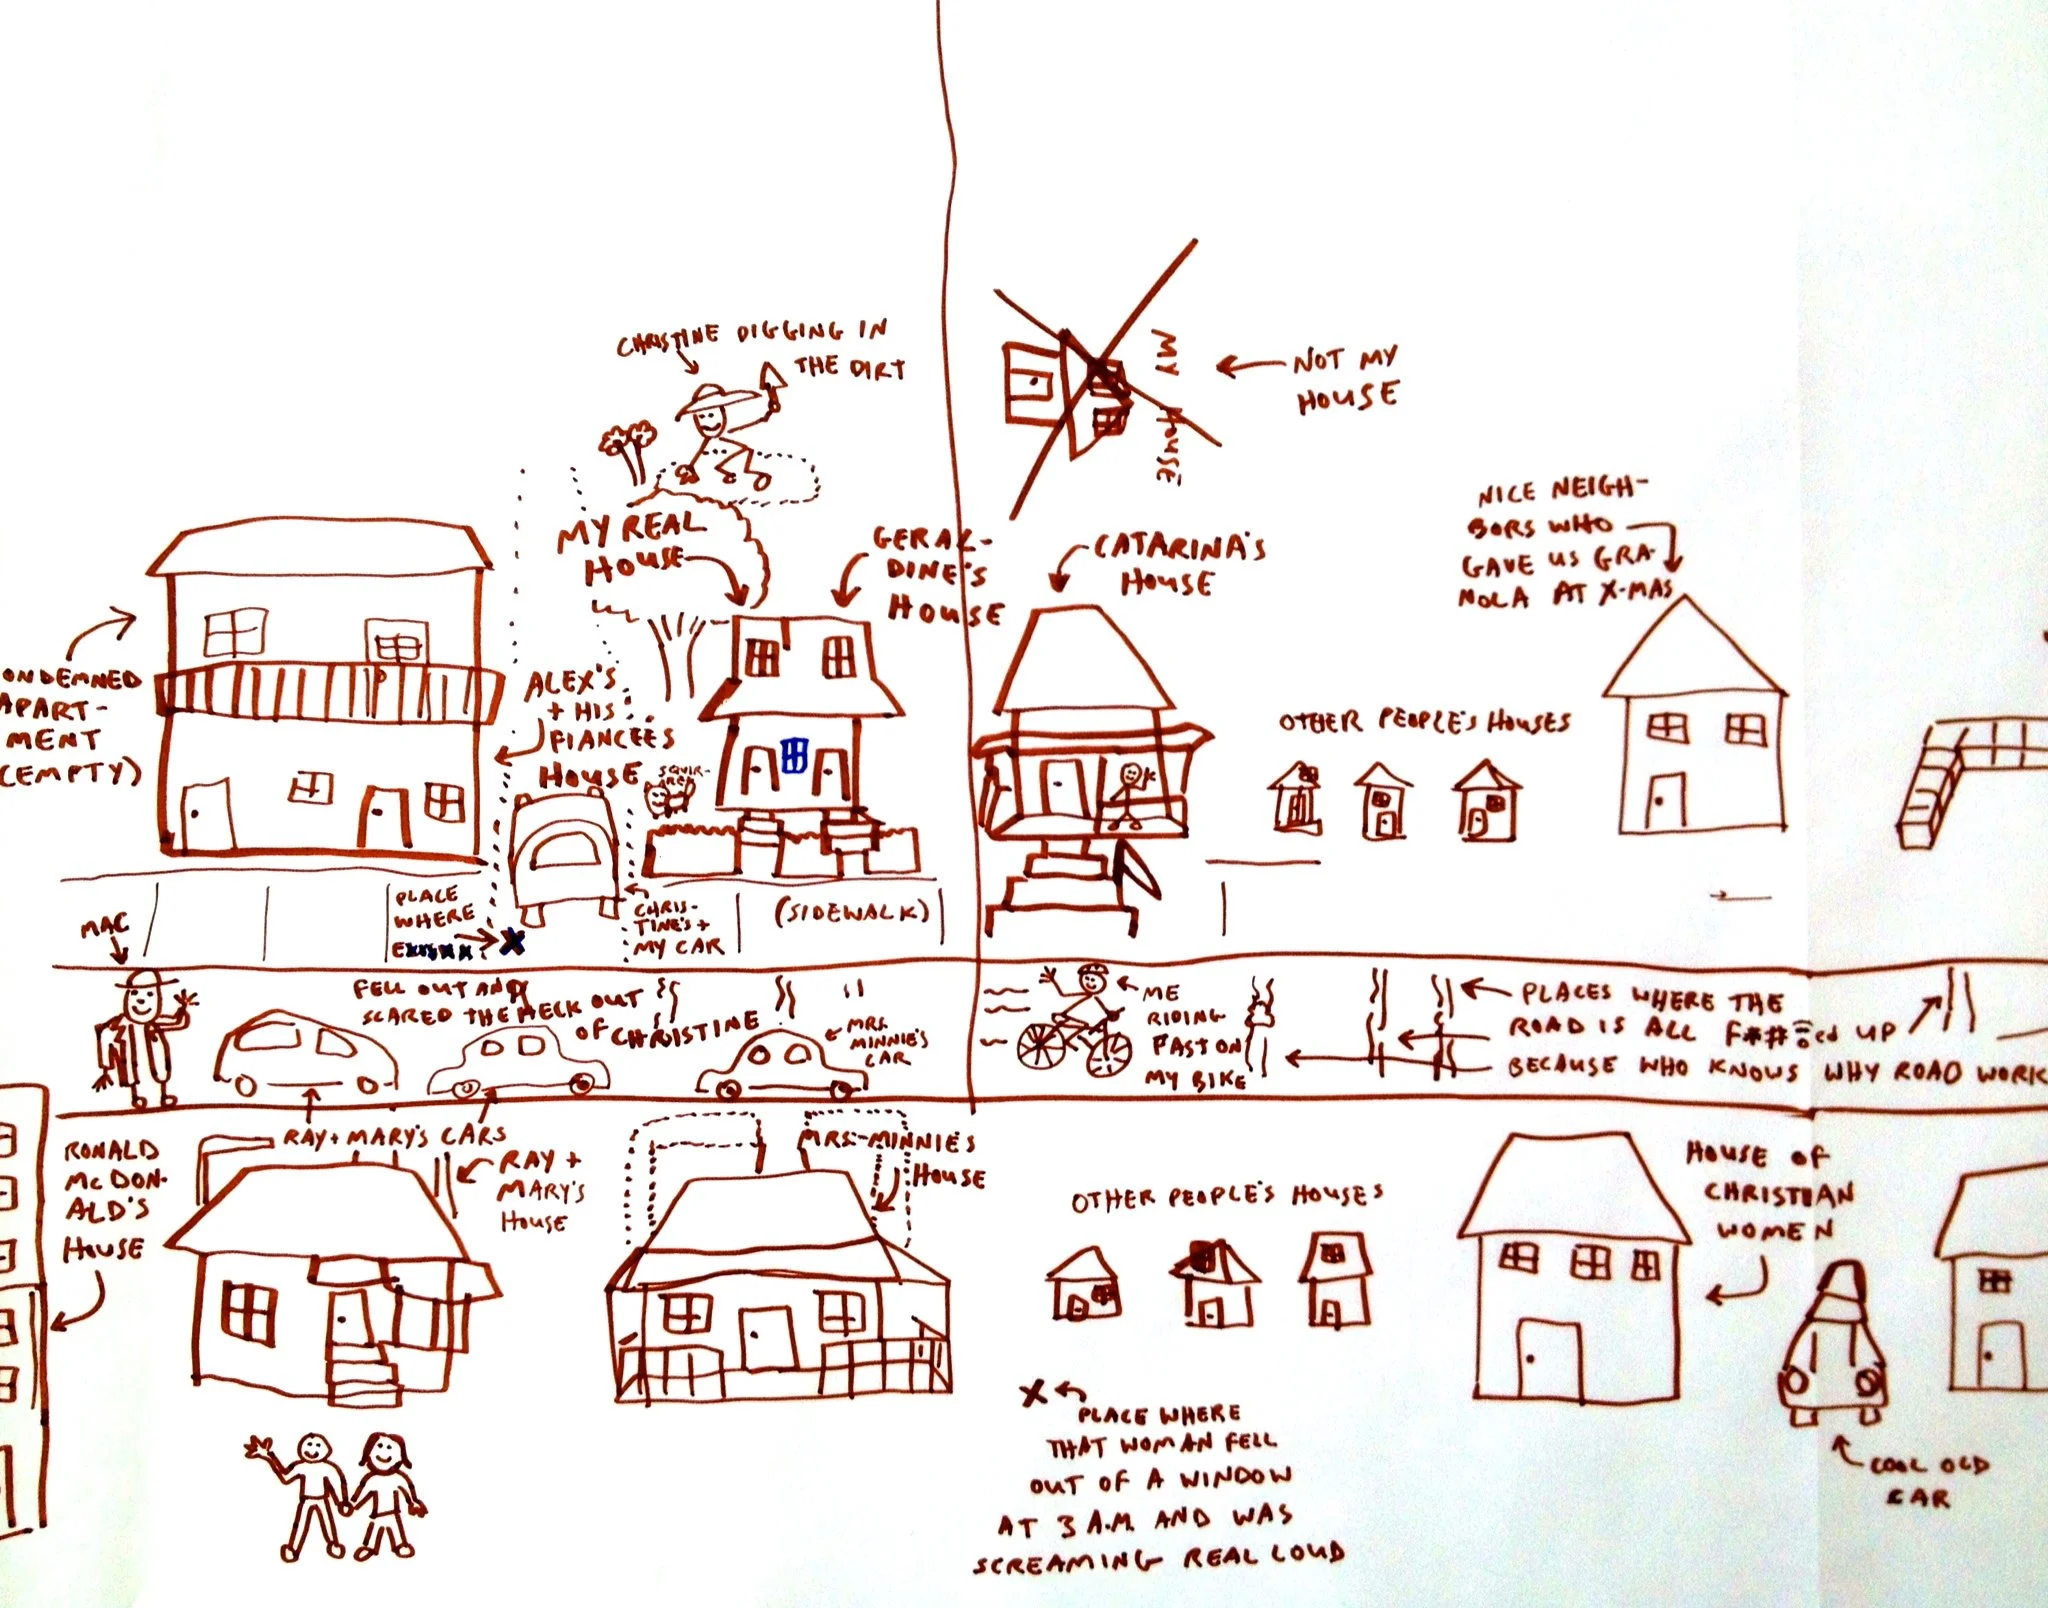 CHRISTINE DIGGING IN
THE DIRT
MY
HOUSE
NOT MY
HOUSE
MY REAL
HOUSE
GERAL-
DINE'S
HOUSE
CATARINA'S
HOUSE
NICE NEIGH-
BORS WHO
GAVE US GRA-
NOLA AT X-MAS
ONDEMNED
APART-
MENT
(EMPTY)
ALEX'S
+ HIS
FIANCEES
HOUSE
SQUIR-
REL
OTHER PEOPLE'S HOUSES
MAC
PLACE
WHERE
CHRIS-
TINE'S +
MY CAR
(SIDEWALK)
FELL OUT AND
SCARED THE HECK OUT
OF CHRISTINE
MRS.
MINNIE'S
CAR
ME
RIDING
FAST ON
MY BIKE
PLACES WHERE THE
ROAD IS ALL F*##ed UP
BECAUSE WHO KNOWS WHY ROAD WORK
RONALD
McDON-
ALD'S
HOUSE
RAY + MARY'S CARS
RAY +
MARY'S
HOUSE
MRS. MINNIE'S
HOUSE
OTHER PEOPLE'S HOUSES
HOUSE OF
CHRISTIAN
WOMEN
X
PLACE WHERE
THAT WOMAN FELL
OUT OF A WINDOW
AT 3 A.M. AND WAS
SCREAMING REAL LOUD
COOL OLD
CAR